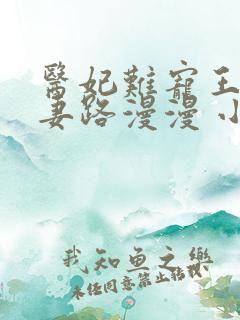 醫妃難寵王
妻路漫漫 小
我知鱼之樂
未经同意禁止转恍